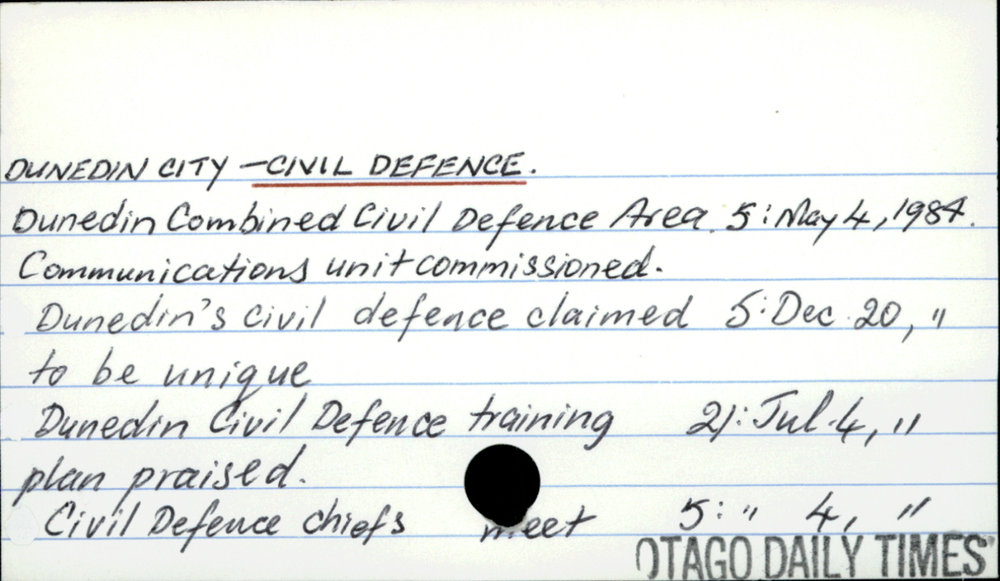 DUNEDIN CITY – CIVIL DEFENCE.
Dunedin Combined Civil Defence Area. 5: May 4, 1984.
Communications unit commissioned.
Dunedin's civil defence claimed 5: Dec 20, "
to be unique
Dunedin Civil Defence training 21: Jul. 4, "
plan praised.
Civil Defence chiefs meet 5: " 4, "
OTAGO DAILY TIMES